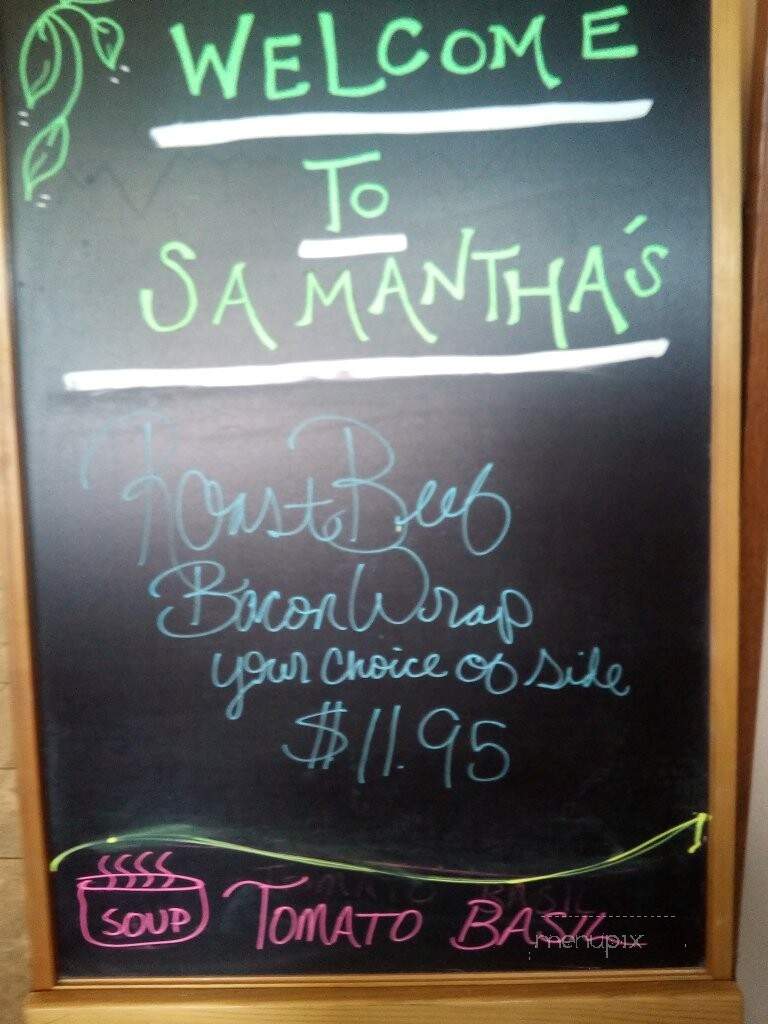 WELCOME
TO
SAMANTHA'S
Roast Beef
Bacon Wrap
your choice of side
$11.95
SOUP TOMATO BASIL
menupix